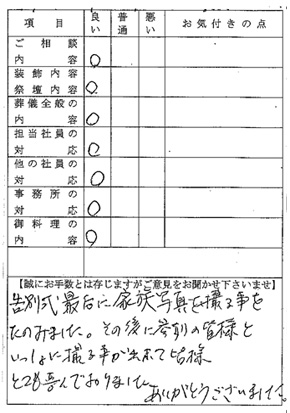 項目 良い 普通 悪い お気付きの点
ご相談内容 ○
装飾内容祭壇内容 ○
葬儀全般の内容 ○
担当社員の対応 ○
他の社員の対応 ○
事務所の対応 ○
御料理の内容 ○
【誠にお手数とは存じますがご意見をお聞かせ下さいませ】
告別式最后に家族写真を撮る事を
たのみました。その後に参列の皆様と
いっしょに撮る事が出来て皆様
とても喜んでおりました
ありがとうございました。